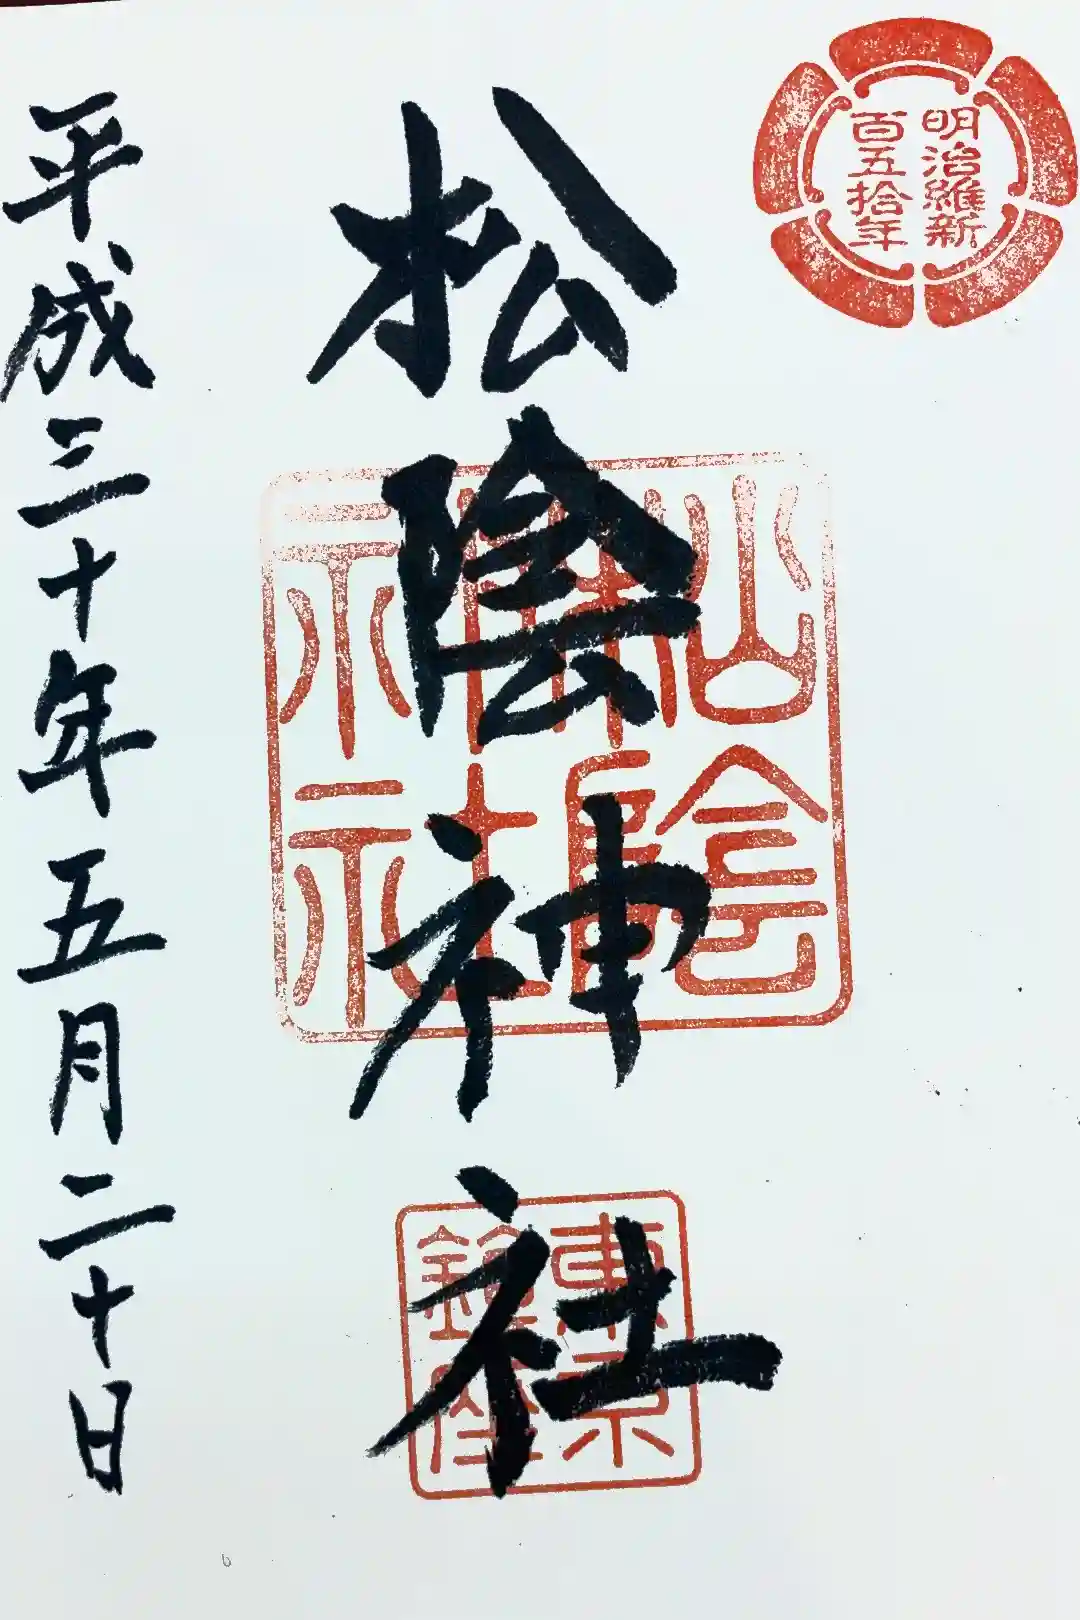 明治維新
百五拾年
松陰神社
松陰
神社
東京
鎮座
平成三十年五月二十日